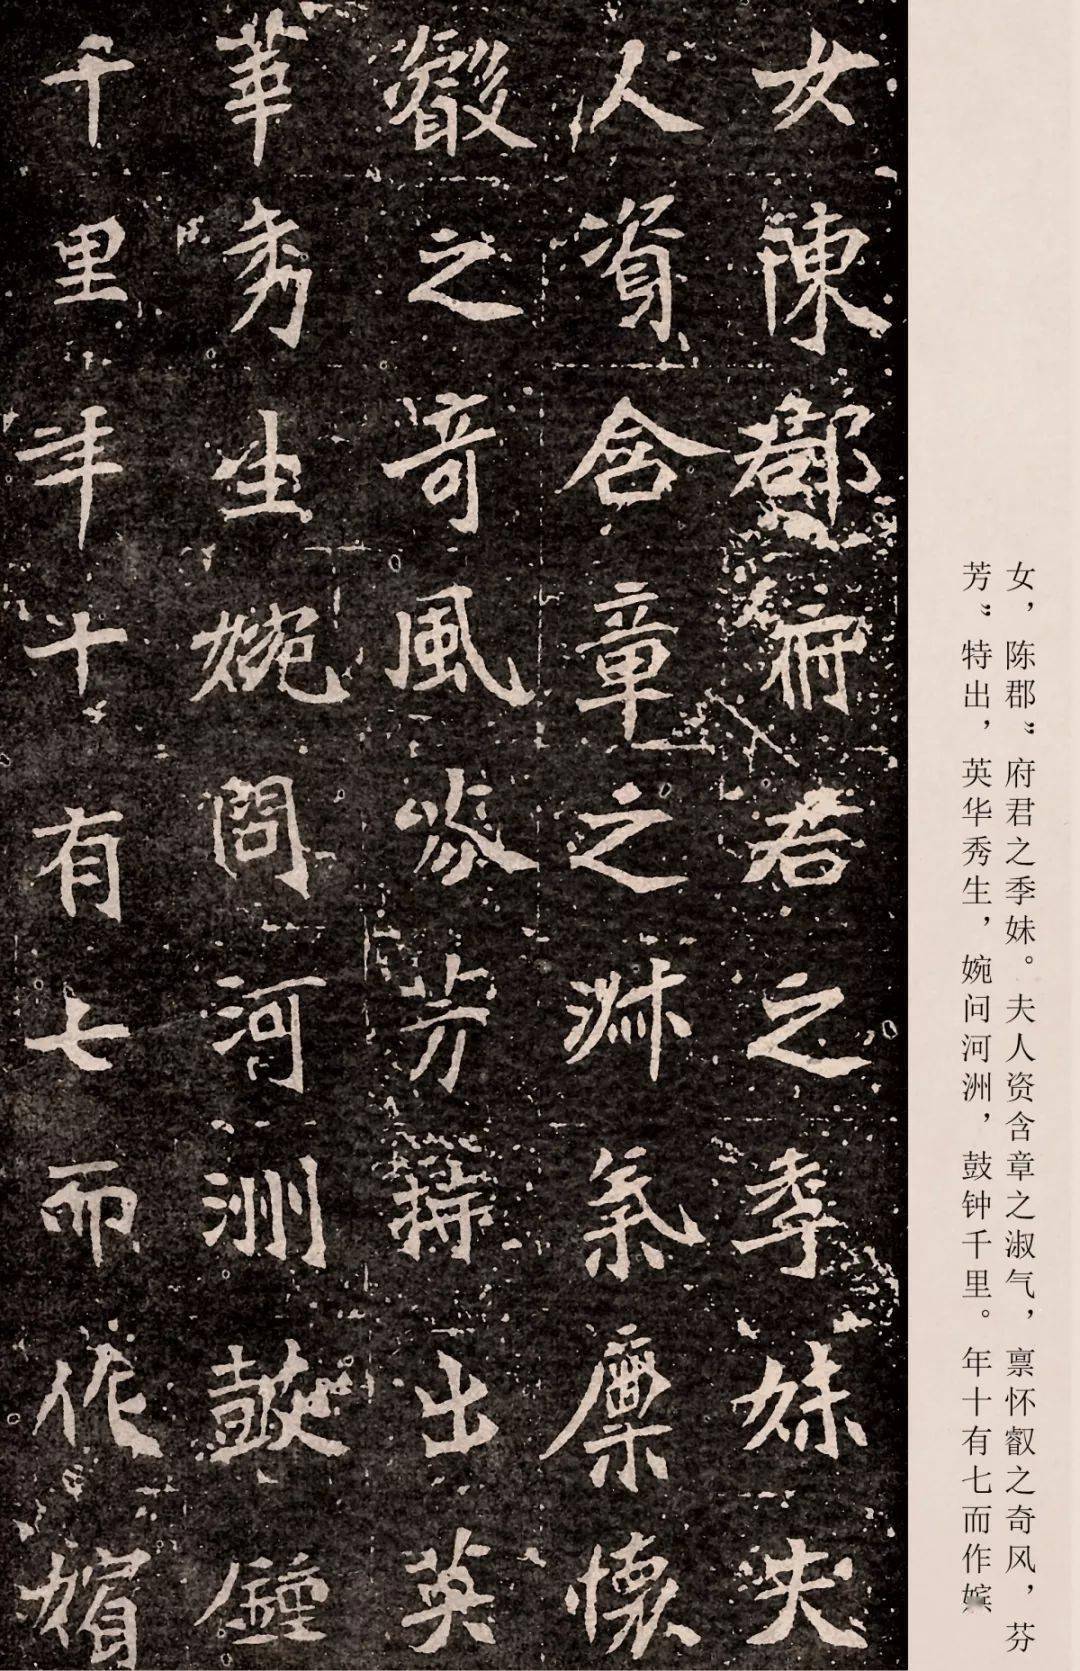 女陳郡府君之季妹夫
人資含章之淑氣稟懷
叡之奇風芬芳特出英
華秀生婉問河洲鼓鐘
千里年十有七而作嬪
女，陈郡〃府君之季妹。夫人资含章之淑气，禀怀叡之奇风，芬
芳〃特出，英华秀生，婉问河洲，鼓钟千里。年十有七而作嫔